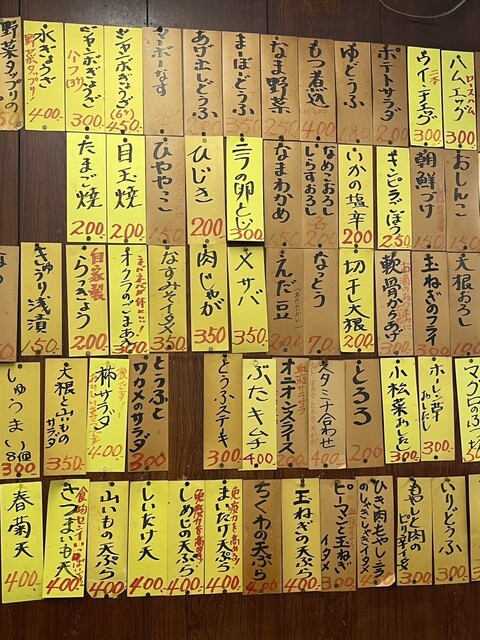 ハムエッグ
300
ウインナー
300
ポテトサラダ
200
ゆどうふ
180
もつ煮込
400
なま野菜
250
まーぼどうふ
350
あげ出しどうふ
マーボーなす
ジャンボぎょうざ
(6ケ)
450
ジャンボぎょうざ
ハーフ(3ケ)
300
水ぎょうざ
野菜タップリ!
400
野菜タップリの
おしんこ
150
朝鮮づけ
150
キンピラごぼう
250
いかの塩辛
200
なめこおろし
しらすおろし
各200
なまわかめ
150
ニラの卵とじ
300
ひじき
200
ひややっこ
150
目玉焼
200
たまご焼
200
大根おろし
150
玉ねぎのフライ
300
軟骨からあげ
切干し大根
200
なっとう
70
えだ豆
200
〆サバ
350
肉じゃが
350
なすみそイタメ
350
オクラのごまあえ
自家製
らっきょう
200
きゅうり浅漬
150
マグロのぶつ
ホーレン草
おひたし
300
小松菜おひたし
300
とろろ
200
スタミナ合わせ
400
オニオンスライス
200
ぶたキムチ
400
とうふステーキ
300
とうふと
ワカメのサラダ
300
柿サラダ
400
大根と山いもの
サラダ
350
しゅうまい
8個
300
いりどうふ
300
もやしと肉の
ピリ辛イタメ
300
ひき肉ともやしニラ
ピーマンと玉ねぎ
イタメ
300
玉ねぎの天ぷら
400
ちくわの天ぷら
400
免疫力を高める
まいたけ天ぷら
400
免疫力を高める
しめじの天ぷら
400
しいたけ天
400
山いもの天ぷら
400
さつまいも天
400
春菊天
400